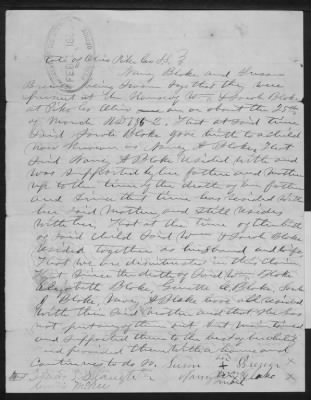 State of Ohio Pike Co SS
Nancy Bloke and Susan
being sworn say that they were
present at the house of Wm & Sarah Bloke
at Pike Co Ohio on or about the 25th
of March AD 186 . that at said time
said Sarah Bloke gave birth to a child
now known as Nancy A Bloke, that
said Nancy A Bloke resided with and
was supported by her father and mother
up to the time of the death of her father
and since that time has resided with
her said mother and still resides
with her, that at the time of the birth
of said child said Wm & Sarah Bloke
resided together as husband and wife
that we are disinterested in this claim
that since the death of said Wm Bloke
Elizabeth Bloke, A Bloke, Sarah
J Bloke Nancy A Bloke have all resided
with their said mother and that she has
not put any of them out but maintained
and supported them to the best of her ability
and provided them with a home and
continues to do so. Susan
Nancy Bloke
mark